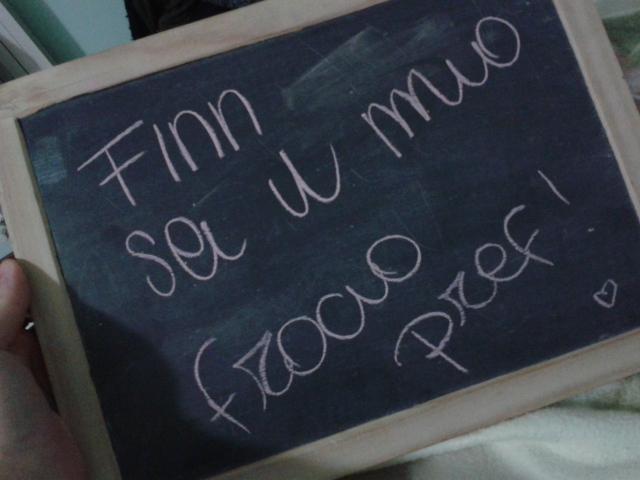 FINN
sei il mio
frocio
pref!